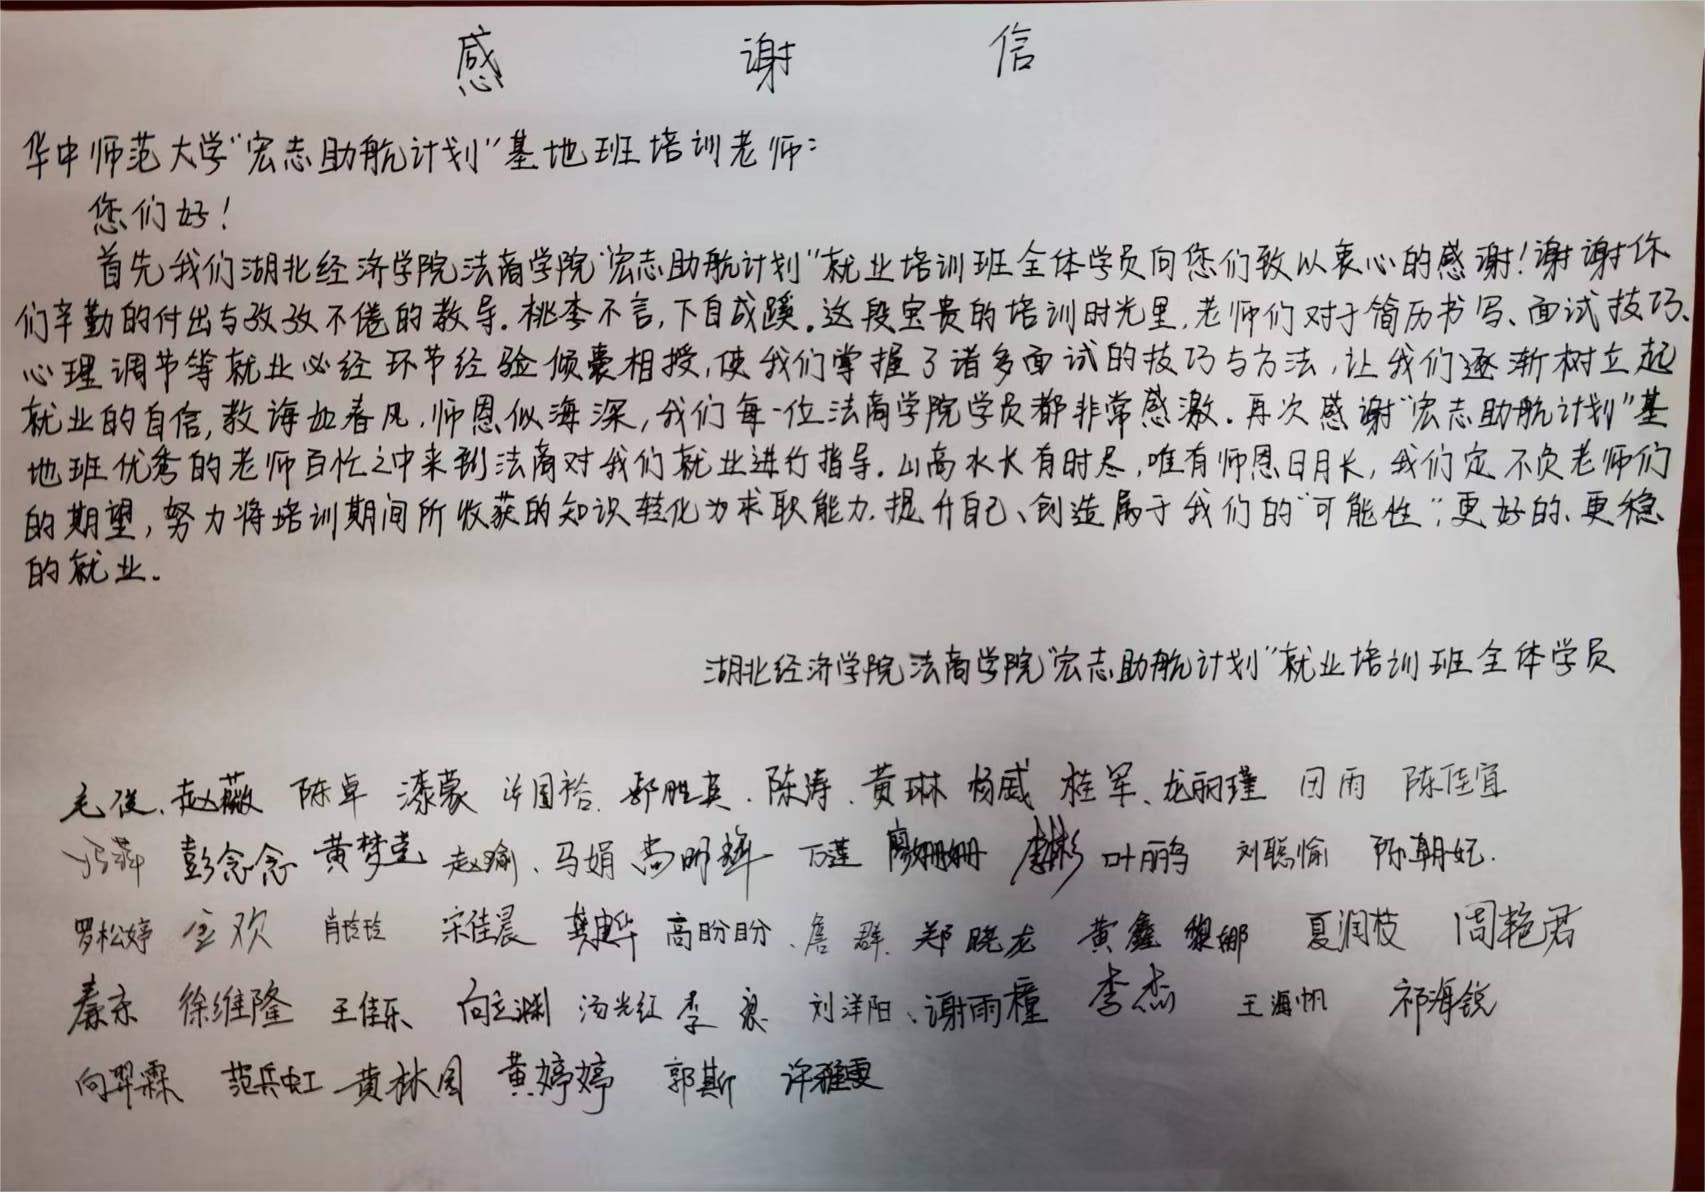 感谢信
华中师范大学“宏志助航计划”基地班培训老师：
您们好！
首先我们湖北经济学院法商学院“宏志助航计划”就业培训班全体学员向您们致以衷心的感谢！谢谢你
们辛勤的付出与孜孜不倦的教导。桃李不言，下自成蹊。这段宝贵的培训时光里，老师们对于简历书写、面试技巧、
心理调节等就业必经环节经验倾囊相授，使我们掌握了诸多面试的技巧与方法，让我们逐渐树立起
就业的自信，教诲如春风，师恩似海深，我们每一位法商学院学员都非常感激。再次感谢“宏志助航计划”基
地班优秀的老师百忙之中来到法商对我们就业进行指导。山高水长有时尽，唯有师恩日月长，我们定不负老师们
的期望，努力将培训期间所收获的知识转化为求职能力，提升自己、创造属于我们的“可能性”，更好的、更稳
的就业。
湖北经济学院法商学院“宏志助航计划”就业培训班全体学员
毛俊、赵薇 陈卓 漆蒙 许国裕 郭胜英、陈涛、黄琳 杨威 桂军、龙丽瑾 田雨 陈佳宜
彭念念 黄梦莹 赵瑜、马娟 万莲 廖姗姗 李彬 叶丽 刘聪愉
罗松婷 金欢 肖玲玲 宋佳晨 龚建华 高盼盼、詹群 郑晓龙 黄鑫 黎娜 夏润枝 周艳君
秦京 徐维隆 王佳乐 向立渊 汤光红 李 刘洋阳、谢雨橦 李杰 王海帆 祁海锐
向羿霖 范兵虹 黄林园 黄婷婷 郭斯 许雅雯